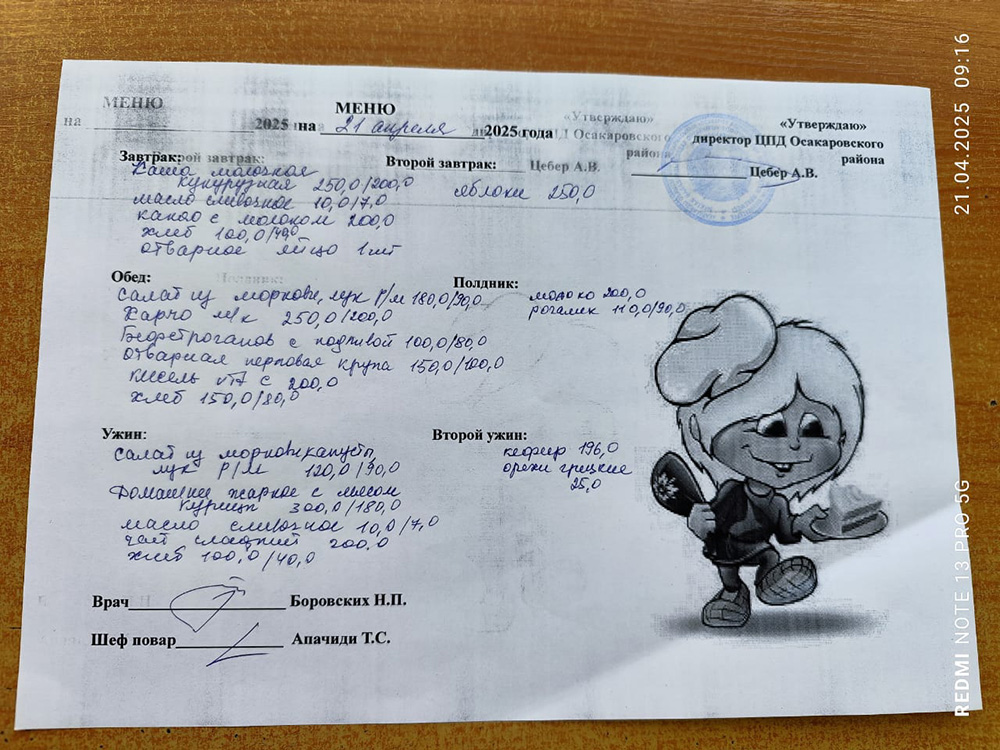 МЕНЮ
МЕНЮ
на
2025 на 21 апреля 2025 года
«Утверждаю»
«Утверждаю»
директор ЦПД Осакаровского
района
Цебер А.В.
Завтрак:
Второй завтрак:
Цебер А.В.
Каша молочное
кукурузная 250,0/200,0
яблоки 250,0
масло сливочное 10,0/7,0
какао с молоком 200,0
хлеб 100,0/40,0
отварное яйцо 1 шт
Обед:
Полдник:
Полдник:
салат из моркови, лук Р/М 180,0/90,0
молоко 200,0
рогалик 110,0/90,0
Харчо м/к 250,0/200,0
Бефстроганов с подливой 100,0/80,0
отварная перловая крупа 150,0/100,0
кисель с 200,0
хлеб 150,0/80,0
Ужин:
Второй ужин:
салат из моркови, капусты,
лук Р/М 120,0/90,0
кефир 196,0
орехи грецкие
25,0
Домашнее жаркое с мясом
курицы 300,0/180,0
масло сливочное 10,0/7,0
чай сладкий 200,0
хлеб 100,0/40,0
Врач Боровских Н.П.
Шеф повар Апачиди Т.С.
21.04.2025 09:16
REDMI NOTE 13 PRO 5G